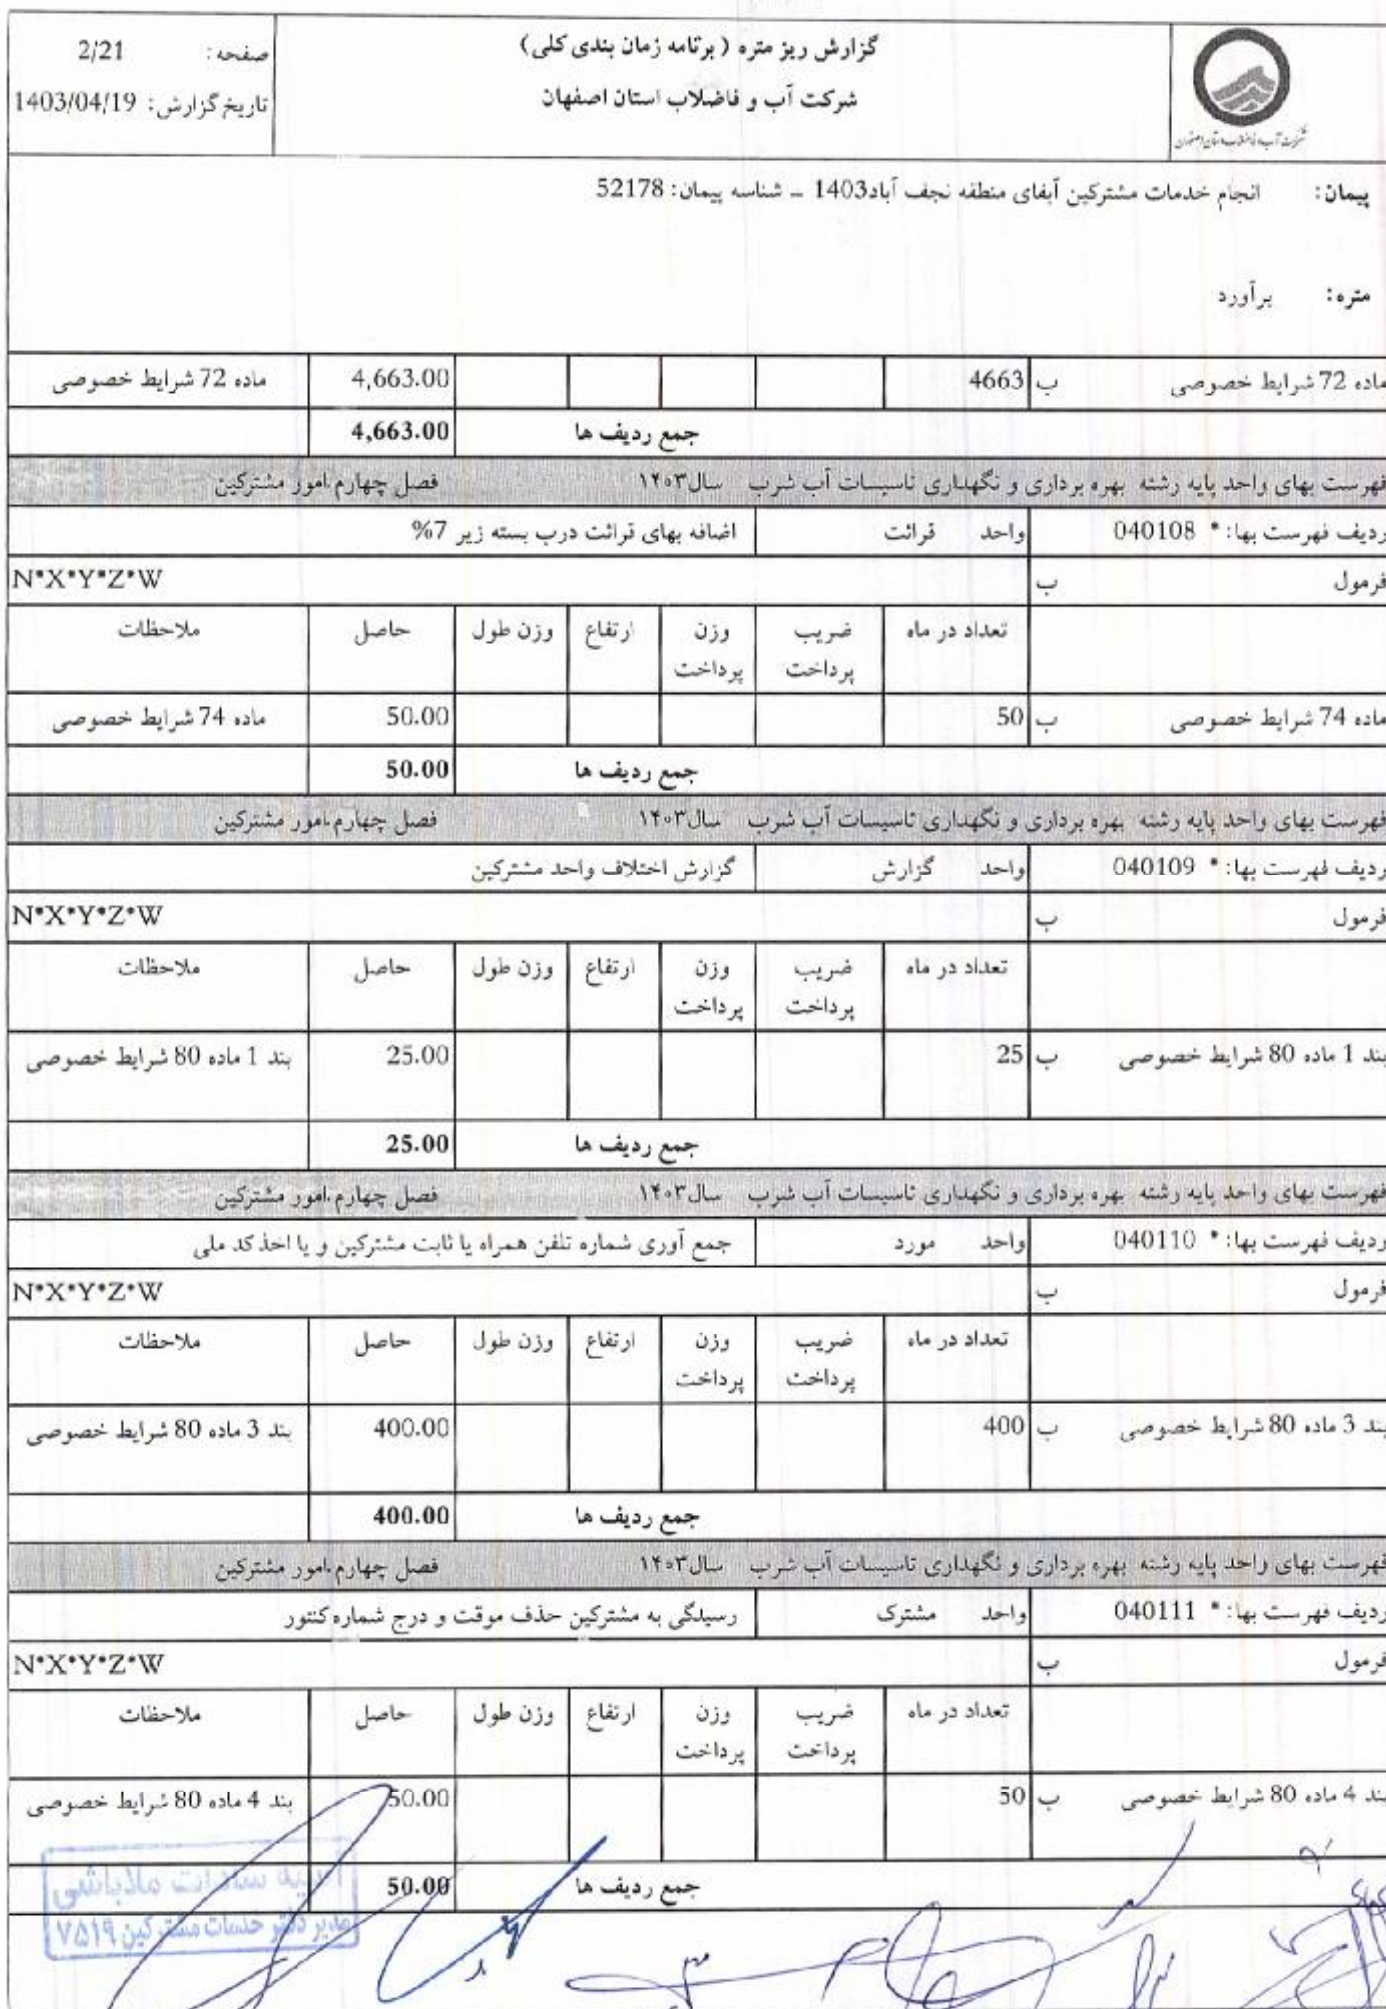 گزارش ریز متره ( برنامه زمان بندی کلی)
شرکت آب و فاضلاب استان اصفهان
صفحه: 2/21
تاریخ گزارش: 1403/04/19
شرکت آب و فاضلاب استان اصفهان
پیمان: انجام خدمات مشترکین آبفای منطقه نجف آباد1403 - شناسه پیمان: 52178
متره: برآورد
ماده 72 شرایط خصوصی ب 4663 4,663.00 ماده 72 شرایط خصوصی
جمع ردیف ها 4,663.00
فهرست بهای واحد پایه رشته بهره برداری و نگهداری تاسیسات آب شرب سال۱۴۰۳ فصل چهارم.امور مشترکین
ردیف فهرست بها: * 040108 واحد قرائت اضافه بهای قرائت درب بسته زیر 7%
فرمول ب N*X*Y*Z*W
تعداد در ماه ضریب پرداخت وزن پرداخت ارتفاع وزن طول حاصل ملاحظات
ماده 74 شرایط خصوصی ب 50 50.00 ماده 74 شرایط خصوصی
جمع ردیف ها 50.00
فهرست بهای واحد پایه رشته بهره برداری و نگهداری تاسیسات آب شرب سال۱۴۰۳ فصل چهارم.امور مشترکین
ردیف فهرست بها: * 040109 واحد گزارش گزارش اختلاف واحد مشترکین
فرمول ب N*X*Y*Z*W
تعداد در ماه ضریب پرداخت وزن پرداخت ارتفاع وزن طول حاصل ملاحظات
بند 1 ماده 80 شرایط خصوصی ب 25 25.00 بند 1 ماده 80 شرایط خصوصی
جمع ردیف ها 25.00
فهرست بهای واحد پایه رشته بهره برداری و نگهداری تاسیسات آب شرب سال۱۴۰۳ فصل چهارم.امور مشترکین
ردیف فهرست بها: * 040110 واحد مورد جمع آوری شماره تلفن همراه یا ثابت مشترکین و یا اخذ کد ملی
فرمول ب N*X*Y*Z*W
تعداد در ماه ضریب پرداخت وزن پرداخت ارتفاع وزن طول حاصل ملاحظات
بند 3 ماده 80 شرایط خصوصی ب 400 400.00 بند 3 ماده 80 شرایط خصوصی
جمع ردیف ها 400.00
فهرست بهای واحد پایه رشته بهره برداری و نگهداری تاسیسات آب شرب سال۱۴۰۳ فصل چهارم.امور مشترکین
ردیف فهرست بها: * 040111 واحد مشترک رسیدگی به مشترکین حذف موقت و درج شماره کنتور
فرمول ب N*X*Y*Z*W
تعداد در ماه ضریب پرداخت وزن پرداخت ارتفاع وزن طول حاصل ملاحظات
بند 4 ماده 80 شرایط خصوصی ب 50 50.00 بند 4 ماده 80 شرایط خصوصی
جمع ردیف ها 50.00
سادات ملاباشی
مدیر دفتر خدمات مشترکین ۷۵۱۹